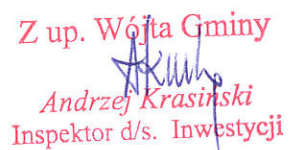 Z up. Wójta Gminy
Andrzej Krasiński
Inspektor d/s. Inwestycji